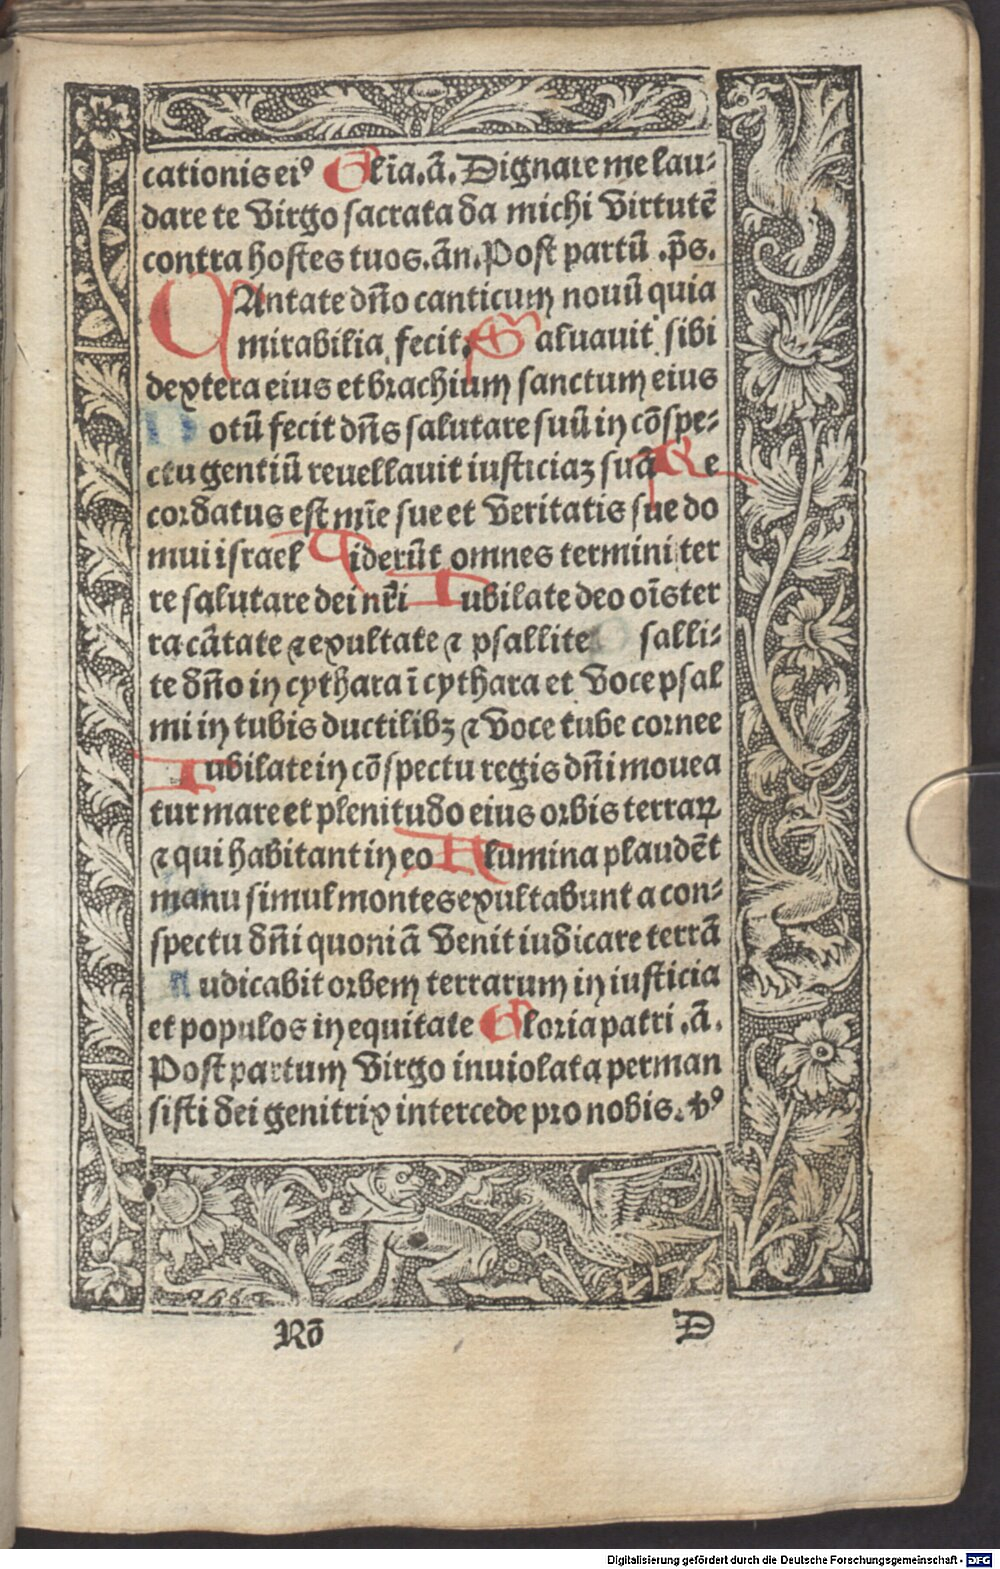 cationis eiꝰ Glīa.ā. Dignare me lau⸗
dare te Virgo sacrata da michi Virtutē
contra hostes tuos.ān. Post partū .p̄s.
CAntate dn̄o canticum nouū quia
mirabilia fecit. Saluauit sibi
dextera eius et brachium sanctum eius
Notū fecit dn̄s salutare suū in cōspe⸗
ctu gentiū reuellauit iusticiaz suā Re
cordatus est mīe sue et Veritatis sue do
mui israel Viderūt omnes termini ter
re salutare dei nr̄i Iubilate deo oīs ter
ra cātate ⁊ exultate ⁊ psallite Psalli⸗
te dn̄o in cythara ī cythara et Voce psal
mi in tubis ductilibꝫ ⁊ Voce tube cornee
Iubilate in cōspectu regis dn̄i mouea
tur mare et plenitudo eius orbis terraꝝ
⁊ qui habitant in eo Flumina plaudēt
manu simul montes exultabunt a con⸗
spectu dn̄i quoniā Venit iudicare terrā
Iudicabit orbem terrarum in iusticia
et populos in equitate Gloria patri .ā.
Post partum Virgo inuiolata perman
sisti dei genitrix intercede pro nobis. Vꝰ
Rō D
Digitalisierung gefördert durch die Deutsche Forschungsgemeinschaft - DFG